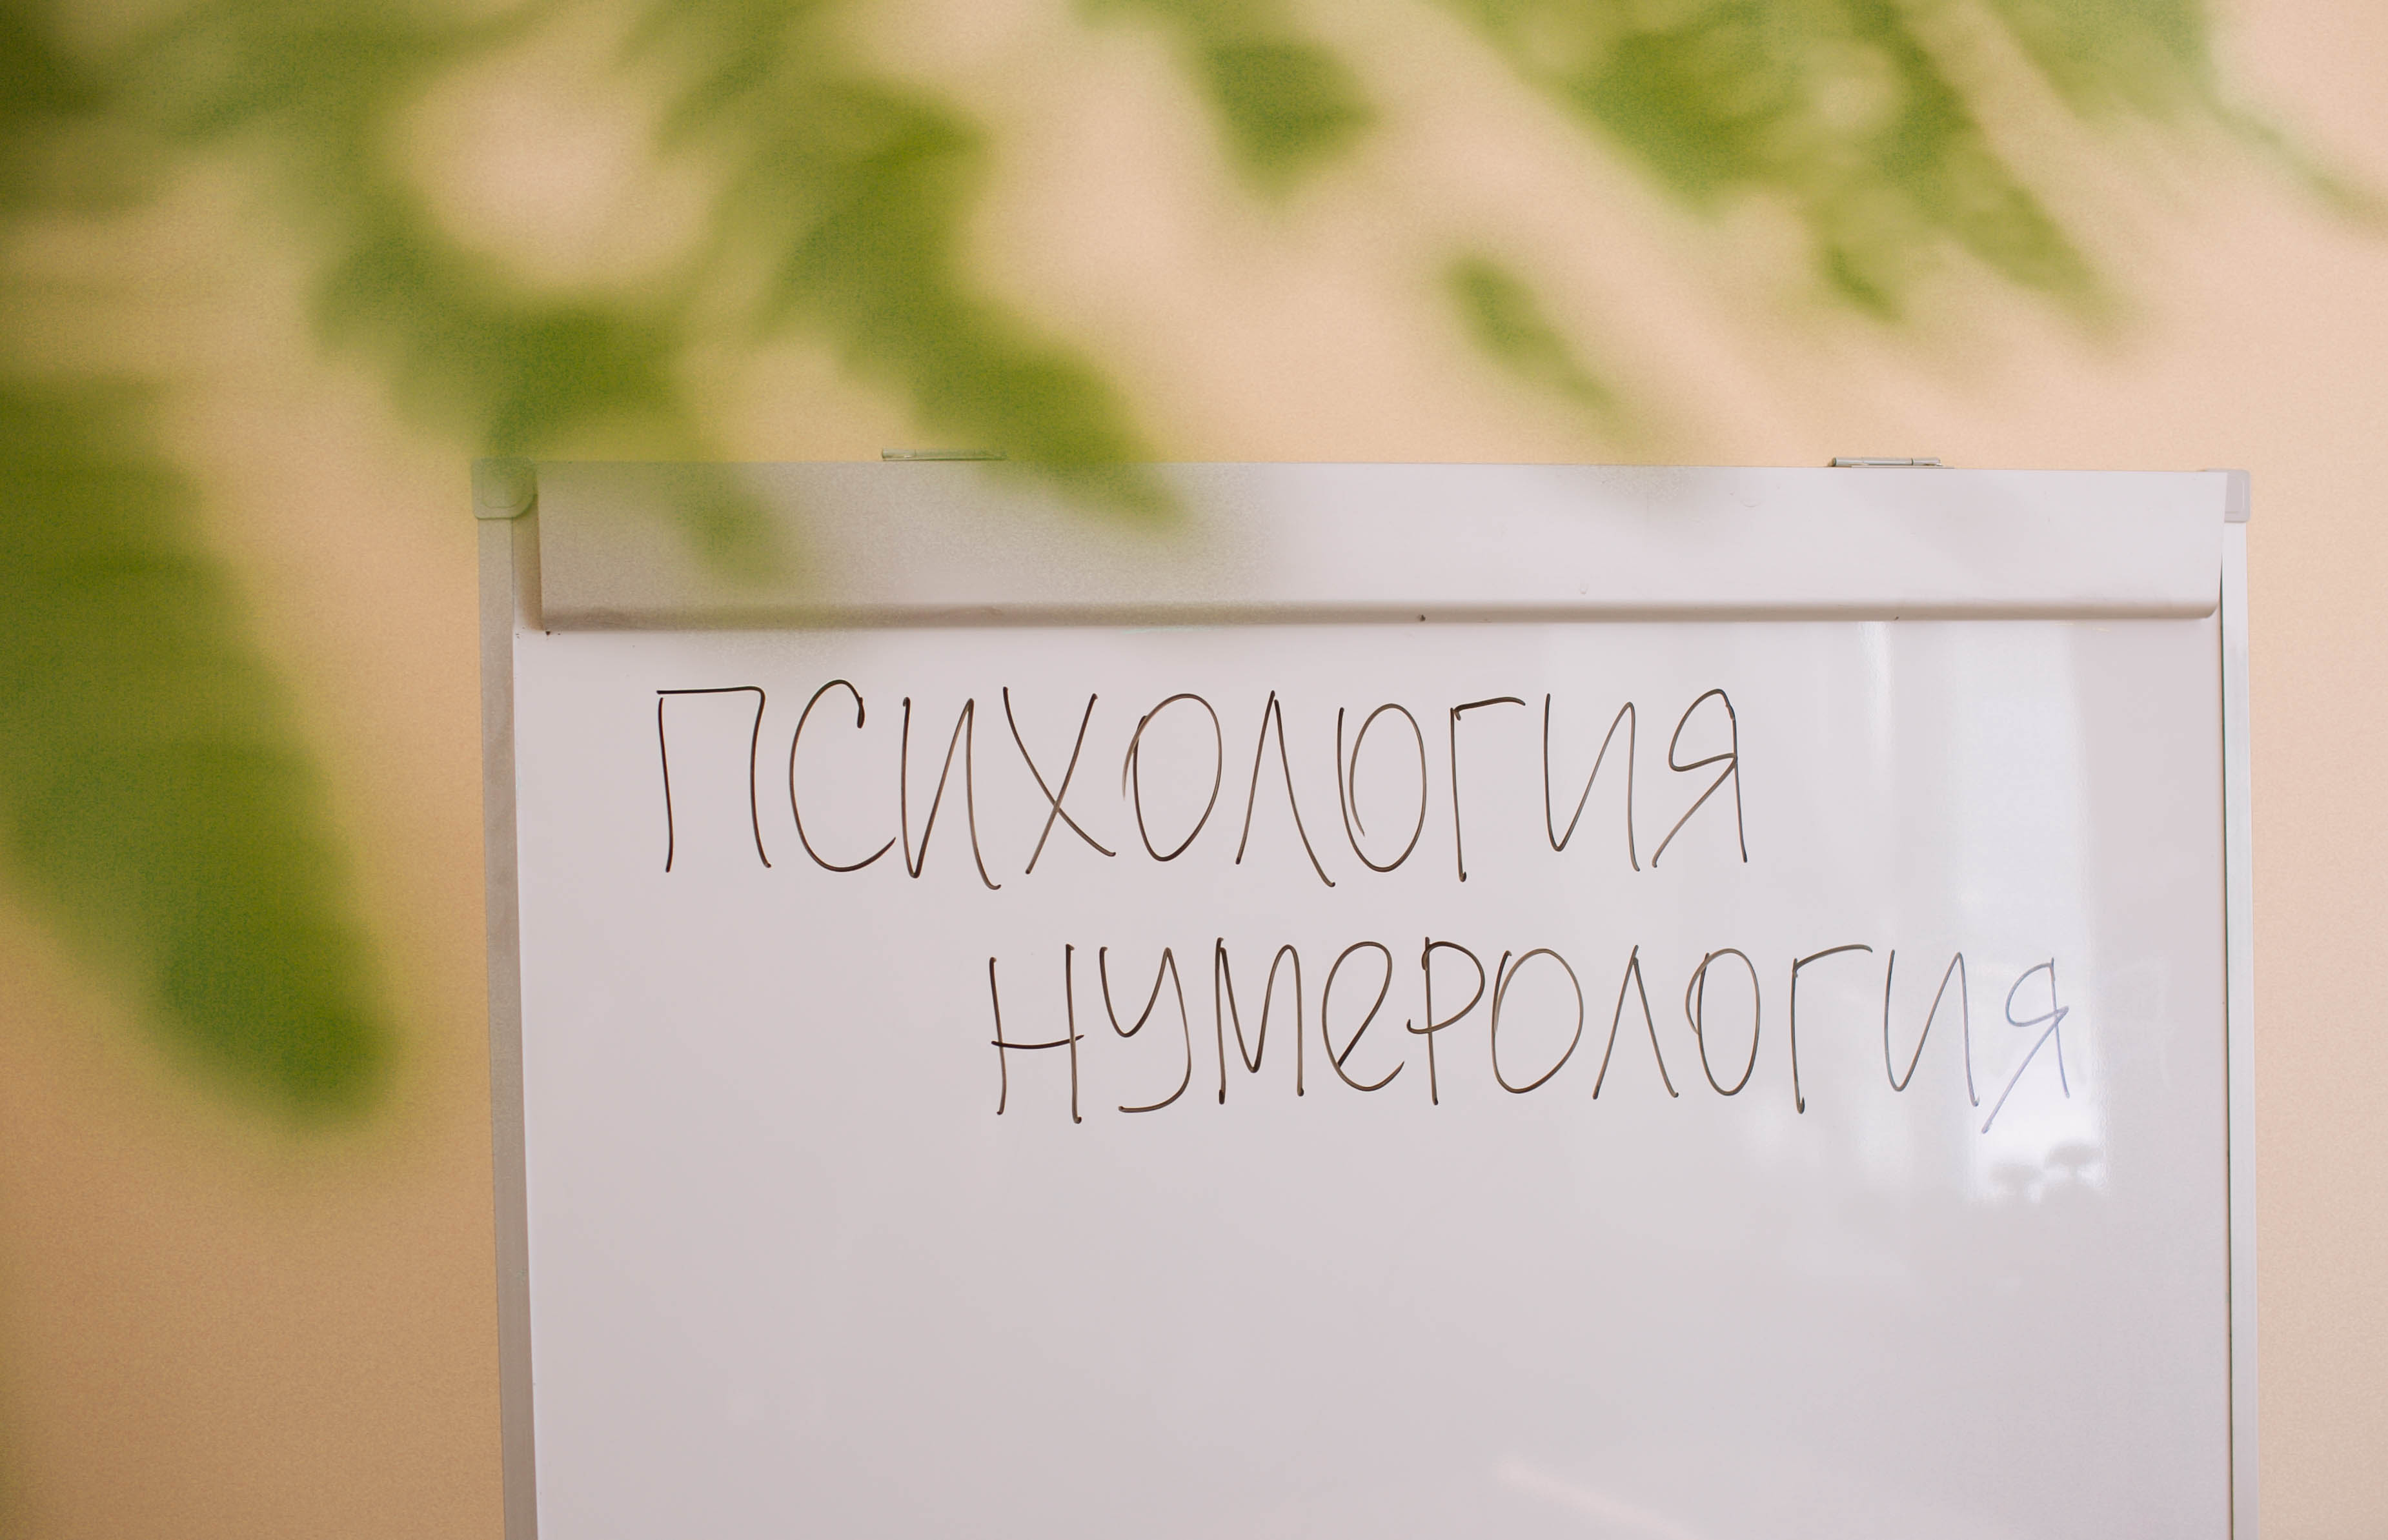 ПСИХОЛОГИЯ
НУМЕРОЛОГИЯ